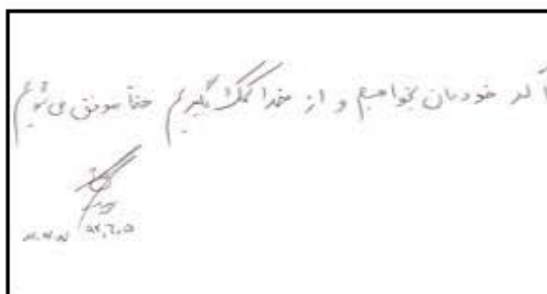 اگر خودمان بخواهیم و از خدا کمک بگیریم حتماً موفق می شویم